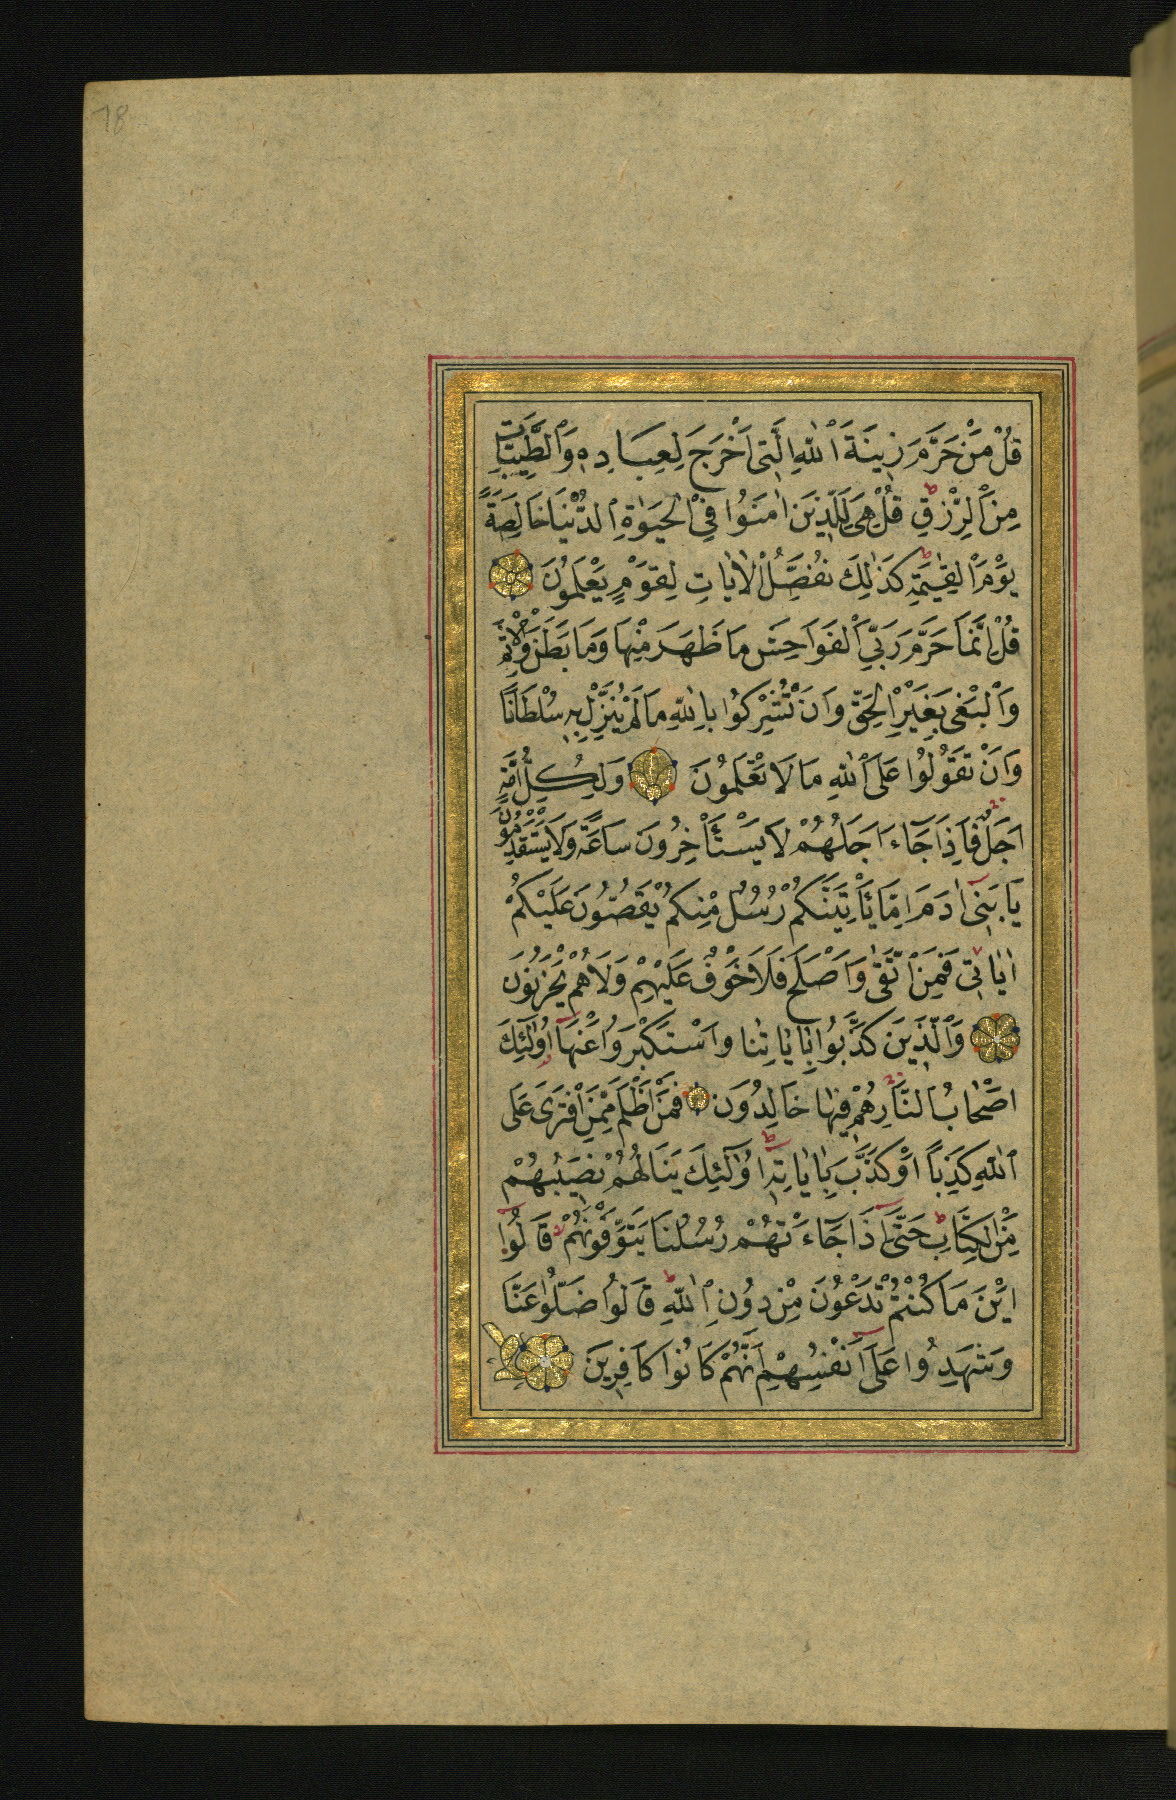 78
قُلْ مَنْ حَرَّمَ زِينَةَ ٱللّٰهِ الَّتِى اَخْرَجَ لِعِبَادِهِ وَٱلطَّيِّبَاتِ
مِنَ ٱلرِّزْقِ ط قُلْ هِىَ لِلَّذِينَ اٰمَنُوا فِى الْحَيٰوةِ ٱلدُّنْيَا خَالِصَةً
يَوْمَ الْقِيٰمَةِ ط كَذٰلِكَ نُفَصِّلُ الْاٰيَاتِ لِقَوْمٍ يَعْلَمُونَ
قُلْ اِنَّمَا حَرَّمَ رَبِّىَ الْفَوَاحِشَ مَا ظَهَرَ مِنْهَا وَمَا بَطَنَ وَالْاِثْمَ
وَٱلْبَغْىَ بِغَيْرِ الْحَقِّ وَاَنْ تُشْرِكُوا بِاللّٰهِ مَا لَمْ يُنَزِّلْ بِهِ سُلْطَانًا
وَاَنْ تَقُولُوا عَلَى ٱللّٰهِ مَا لَا تَعْلَمُونَ وَلِكُلِّ اُمَّةٍ
اَجَلٌ فَاِذَا جَآءَ اَجَلُهُمْ لَا يَسْتَأْخِرُونَ سَاعَةً وَلَا يَسْتَقْدِمُونَ
يَا بَنِىٓ اٰدَمَ اِمَّا يَأْتِيَنَّكُمْ رُسُلٌ مِنْكُمْ يَقُصُّونَ عَلَيْكُمْ
اٰيَاتِى فَمَنِ ٱتَّقٰى وَاَصْلَحَ فَلَا خَوْفٌ عَلَيْهِمْ وَلَا هُمْ يَحْزَنُونَ
وَٱلَّذِينَ كَذَّبُوا بِاٰيَاتِنَا وَاسْتَكْبَرُوا عَنْهَآ اُولٰٓئِكَ
اَصْحَابُ النَّارِ هُمْ فِيهَا خَالِدُونَ فَمَنْ اَظْلَمُ مِمَّنِ افْتَرٰى عَلَى
ٱللّٰهِ كَذِبًا اَوْ كَذَّبَ بِاٰيَاتِهِ ط اُولٰٓئِكَ يَنَالُهُمْ نَصِيبُهُمْ
مِنَ الْكِتَابِ ط حَتّٰىٓ اِذَا جَآءَتْهُمْ رُسُلُنَا يَتَوَفَّوْنَهُمْ قَالُوٓا
اَيْنَ مَا كُنْتُمْ تَدْعُونَ مِنْ دُونِ ٱللّٰهِ ط قَالُوا ضَلُّوا عَنَّا
وَشَهِدُوا عَلٰٓى اَنْفُسِهِمْ اَنَّهُمْ كَانُوا كَافِرِينَ